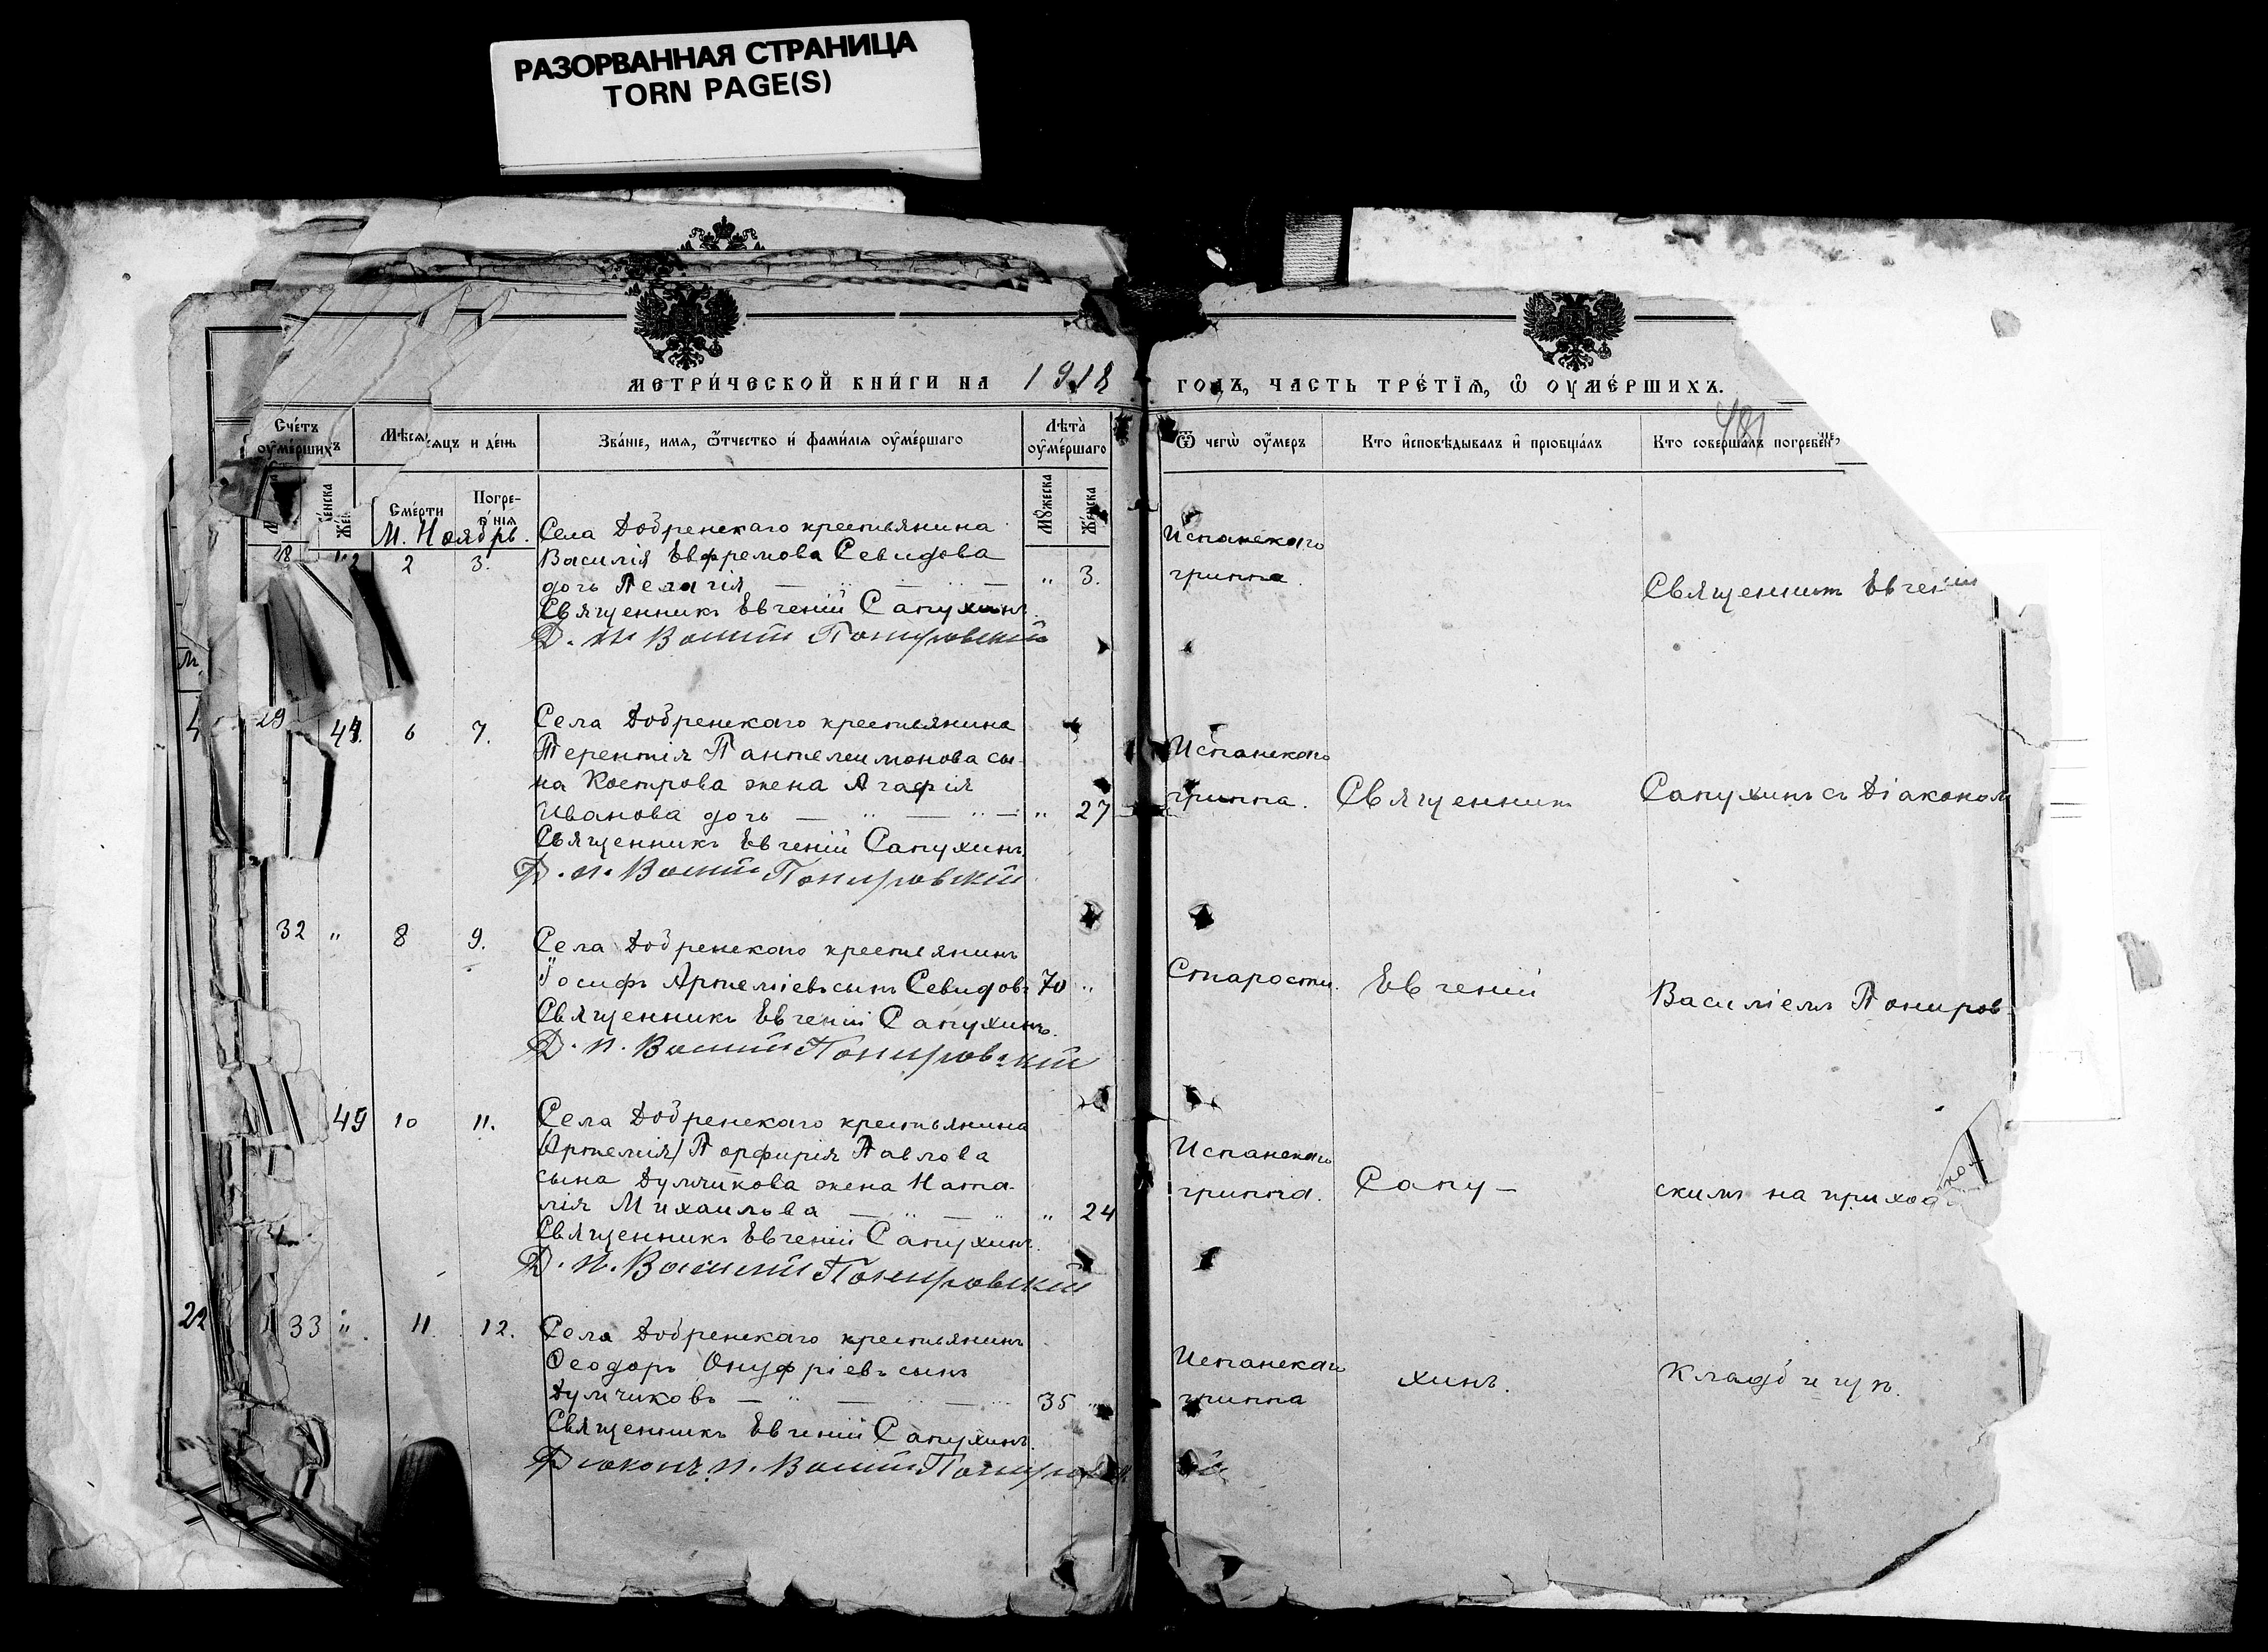 РАЗОРВАННАЯ СТРАНИЦА
TORN PAGE(S)
МЕТРИ́ЧЕСКОЙ КНИ́ГИ НА 1918 ГОДЪ, ЧАСТЬ ТРЕ́ТІѦ, Ѽ ОУМЕ́РШИХЪ.
481
Сче́тъ оуме́ршихъ
Мѣсяцъ и де́нь
Зва́ніе, имя, ѿтчество и фами́лія оуме́ршаго
Лѣта̀ оуме́ршаго
Ѿ чегѡ̀ оу́меръ
Кто и҆сповѣ́дывалъ и҆ пріобща́лъ
Кто соверша́лъ погребе́ніе,
Же́нска
Сме́рти
Погребе́нія
Му́жеска
Же́нска
М. Ноябрь.
2 3.
Села Добренскаго крестьянина
Василія Евфремова Севидова
дочь Пелагія — „ — „ — „ 3.
Священникъ Евгеній Сапухинъ.
Д. н. Василій Понировскій
Испанскаго
гриппа.
Священник Евгеній
29 44. 6 7.
Села Добренскаго крестьянина
Терентія Пантелеимонова сы-
на Кострова жена Агафія
Иванова дочь — „ — „ — „ 27
Священникъ Евгеній Сапухинъ.
Д. н. Василій Понировскій
Испанскаго
гриппа.
Священник
Сапухинъ съ Діаконом
32 „ 8 9.
Села Добренскаго крестьянинъ
Іосифъ Артеміевъ сынъ Севидовъ 70 „
Священникъ Евгеній Сапухинъ.
Д. н. Василій Понировскій
Старости.
Евгеній
Василіемъ Пониров-
49 10 11.
Села Добренскаго крестьянина
(Артемія) Порфирія Павлова
сына Думчикова жена Ната-
лія Михаилова — „ — „ „ 24
Священникъ Евгеній Сапухинъ.
Д. н. Василій Понировскій
Испанскаго
гриппа.
Сапу-
скимъ на приход
22
33 „ 11. 12.
Села Добренскаго крестьянинъ
Феодоръ Онуфріевъ сынъ
Думчиковъ — „ — „ — „ 35 „
Священникъ Евгеній Сапухинъ.
Діаконъ н. Василій Понировскій
Испанскаго
гриппа
хинъ.
Кладбищѣ.